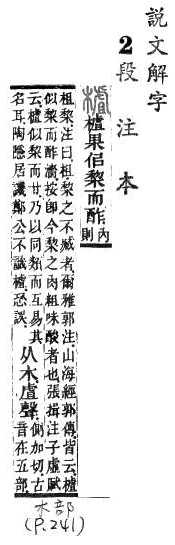 說文解字
2段注本
樝果佀棃而酢內則
柤棃注曰柤棃之不臧者爾雅郭注山海經郭傳皆云樝
似棃而酢濇按卽今棃之肉粗味酸者也張揖注子虛賦
云樝似棃而甘乃以同類而互易其
名耳陶隱居譏鄭公不識樝恐誤
从木虘聲側加切古
音在五部
木部
(P.241)